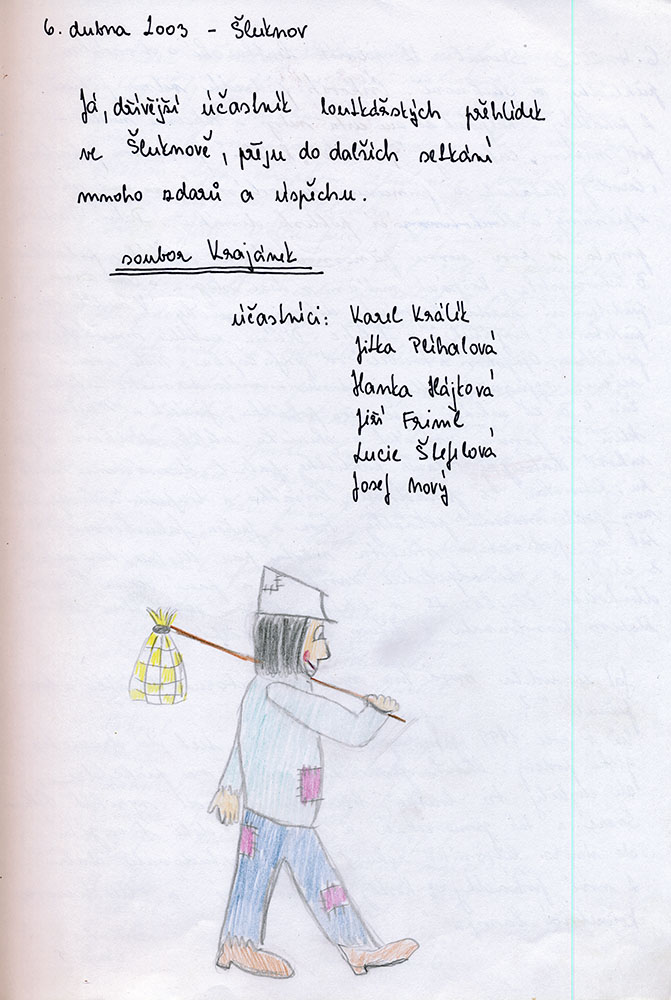 6. dubna 2003 - Šluknov
Já, dřívější účastník loutkářských přehlídek
ve Šluknově, přeju do dalších setkání
mnoho zdarů a úspěchu.
soubor Krajánek
účastníci: Karel Králík
Jitka Plíhalová
Hanka Hájková
Jiří Friml
Lucie Štefilová
Josef Nový